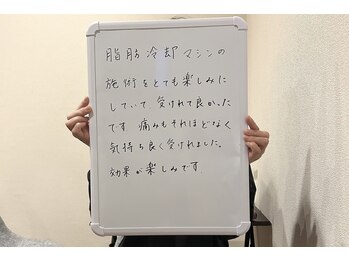 脂肪冷却マシンの
施術をとても楽しみに
していて受けれて良かった
です 痛みもそれほどなく
気持ち良く受けれました。
効果が楽しみです